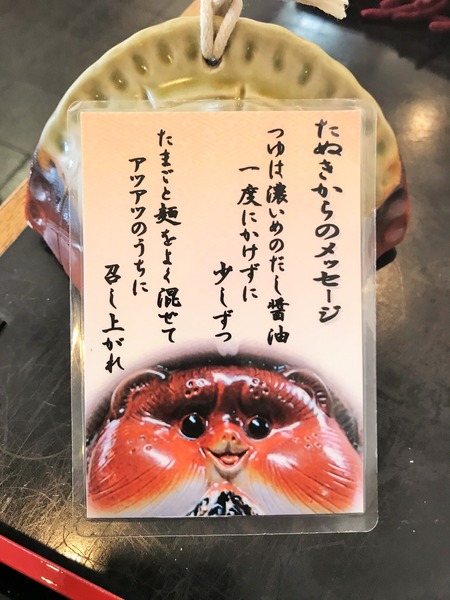 たぬきからのメッセージ
つゆは濃いめのだし醤油
一度にかけずに
少しずつ
たまごと麺をよく混ぜて
アツアツのうちに
召し上がれ